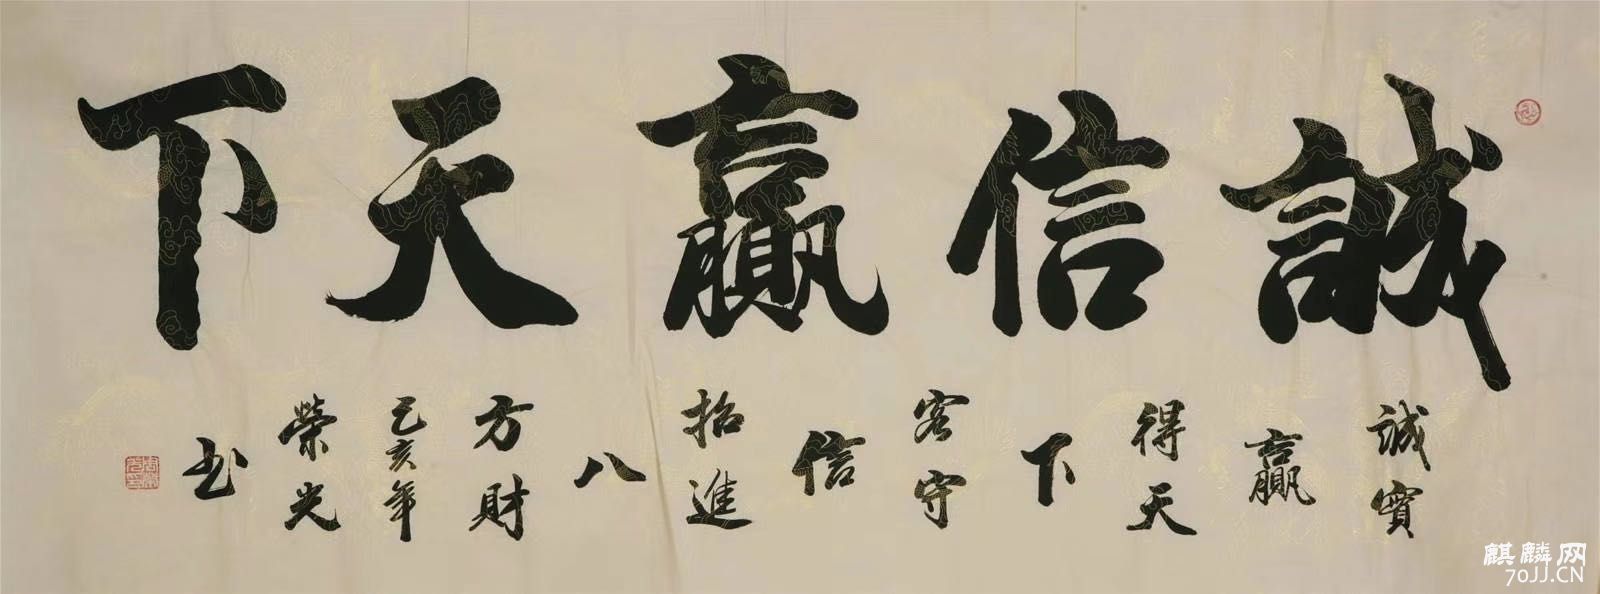 誠信贏天下
誠實
贏
得天
下
客守
信
招進
八
方財
己亥年
榮光
书
麒麟网
70JJ.CN